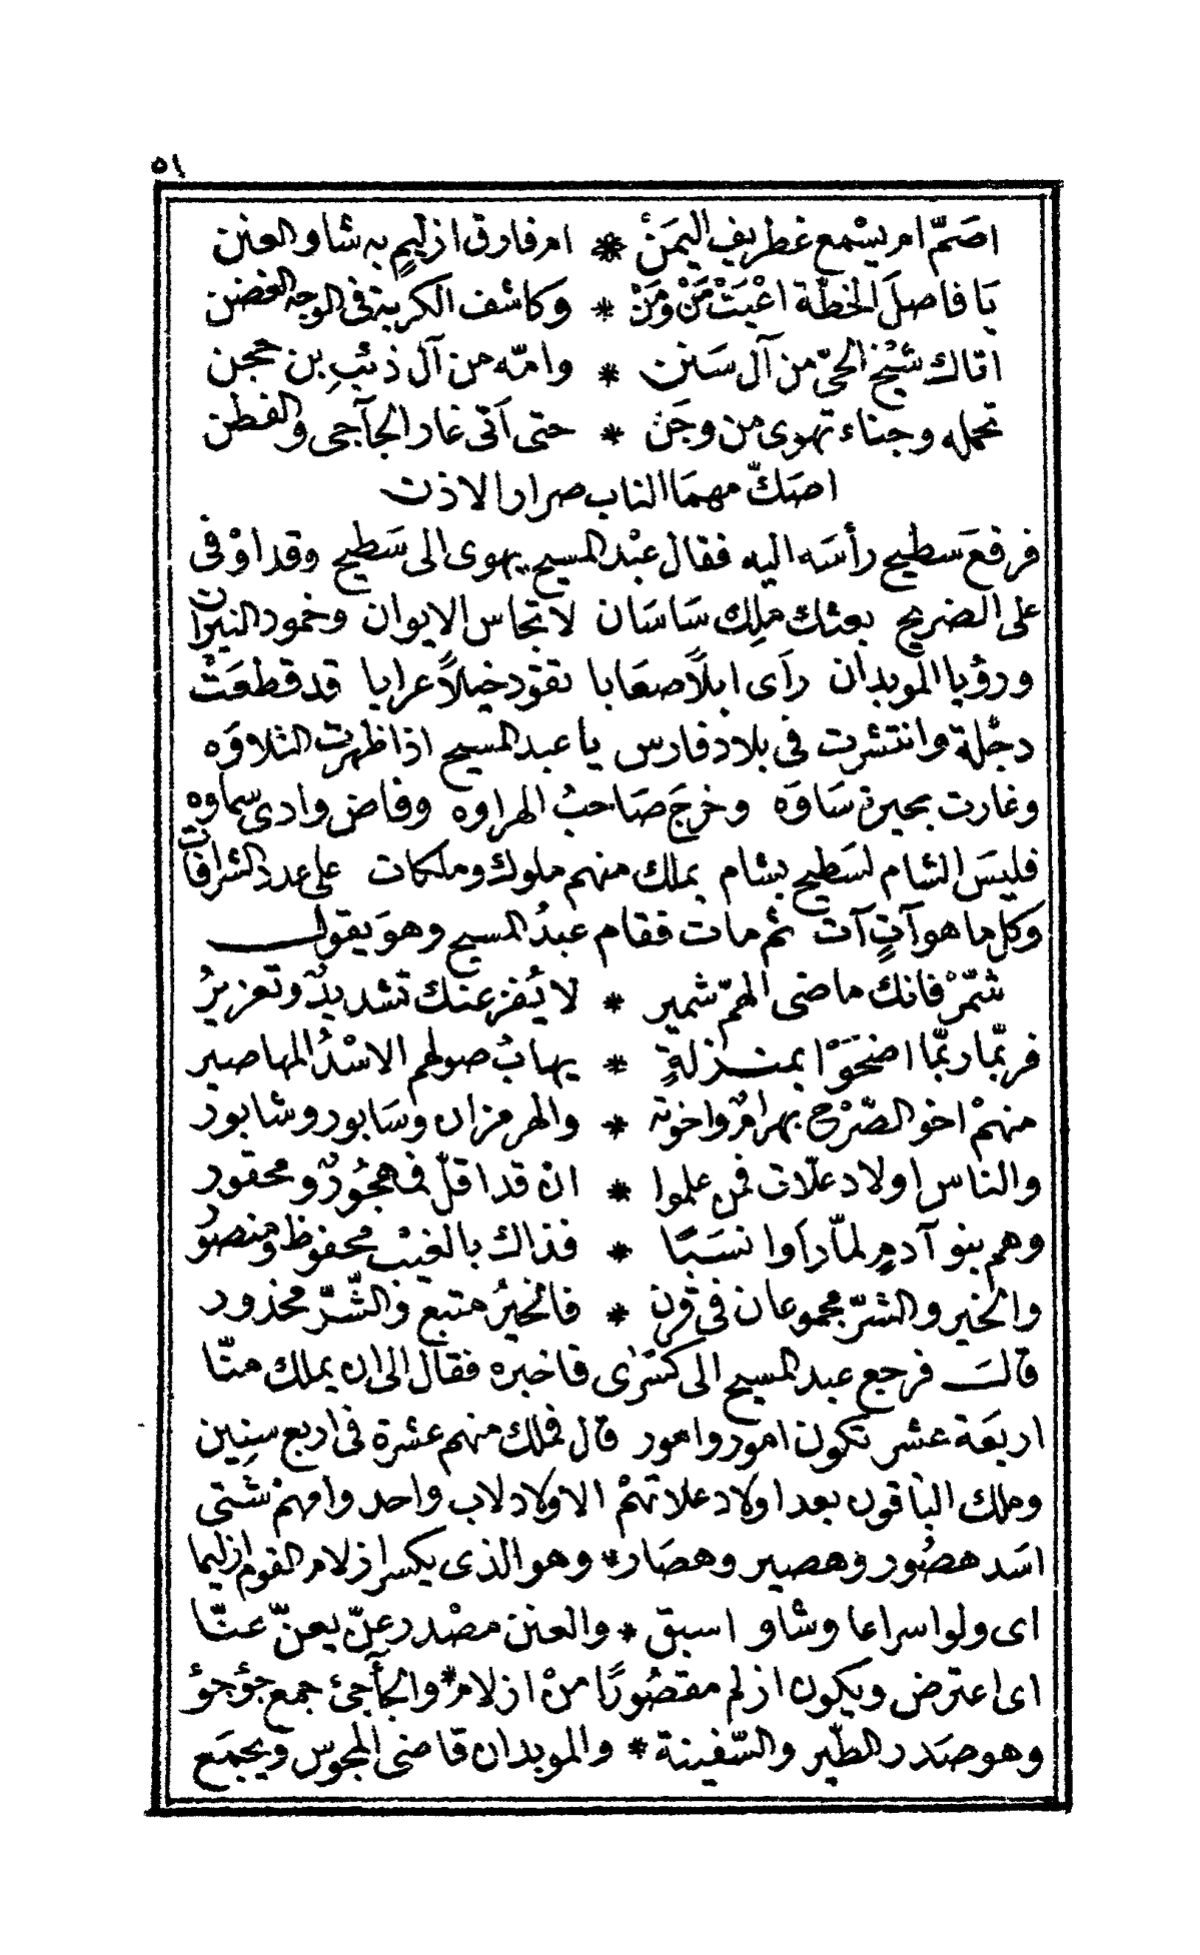 ٥١
اصَمّ ام يسْمع غطريف اليمَنْ * ام فارق ازليمٍ به شاو العنن
يَا فاصلَ الخطّة اعْيَتْ مَنْ ومَنْ * وَكاشف الكربة فى الوجه الغضن
اتاك شيْخ الحىّ من آل سَنن * وامّه من آل ذئبِ بن حجن
تحمله وجناء تهوى من وجَن * حتى اَتى غار الجآجى والقطن
اصَكّ مهمَا الناب صرار الاذن
فرفعَ سطيح رأسَه اليه فقال عبْد المسيح يهوى الى سَطيح وقد اوْفى
على الضريح بعثك ملِك سَاسَان لانجاس الايوان وخمود النيران
ورؤيا الموبدان رأى ابلًا صعَابا تقود خيلًا عرابا قد قطعَتْ
دجْلة وانتشرت فى بلاد فارس يا عبد المسيح اذا ظهرت التلاوَه
وغارت بحيرة سَاوَه وخرجَ صَاحبُ الهراوه وفاض وادى سماوه
فليسَ الشام لسَطيح بشام يملك منهم ملوك وملكات على عدد الشرافات
وكل ما هو آتٍ آت ثم مات فقام عبدُ المسيح وهوَ يقول
شمّرْ فانك ماضى الهمّ شمير * لا يُفزعنك تشديدٌ وتعزيرُ
فربّما ربّما اضحَوْا بمنزلةٍ * يهابُ صولهم الاسْدُ المهاصير
منهمْ اخو الصّرْح بهرامٌ واخوته * والهرمزان وسَابور وشابور
والناس اولاد علّات فمن علموا * ان قد اقلّ فمهجُورٌ ومحقور
وهم بنو آدمٍ لمّا رَاوا نسَبًا * فذاك بالغيْب محفوظ ومنصُور
والخير والشرّ مجموعان فى قرن * فالخيرُ متبع والشّرّ محذور
قالَ فرجع عبد المسيح الى كسْرٰى فاخبره فقال الى ان يملك منّا
اربَعَة عشر تكون امور وامور قال فملك منهم عشرة فى اربع سنِين
وملك الباقون بعد اولاد علاتهمْ الاولاد لاب واحد وامهمْ شتى
اسَد هصُور وهصير وهصَار * وهو الذى يكسر ازلام القوم ازليما
اى ولوا سراعا وشاو اسبق * والعنن مصْدر عنّ يعنّ عنّا
اى اعترض ويكون ازلم مقصُورًا منْ ازلام * والجآجئ جمع جؤجؤ
وهو صَدر الطّير والسّفينة * والموبدان قاضى المجوس ويجمَع